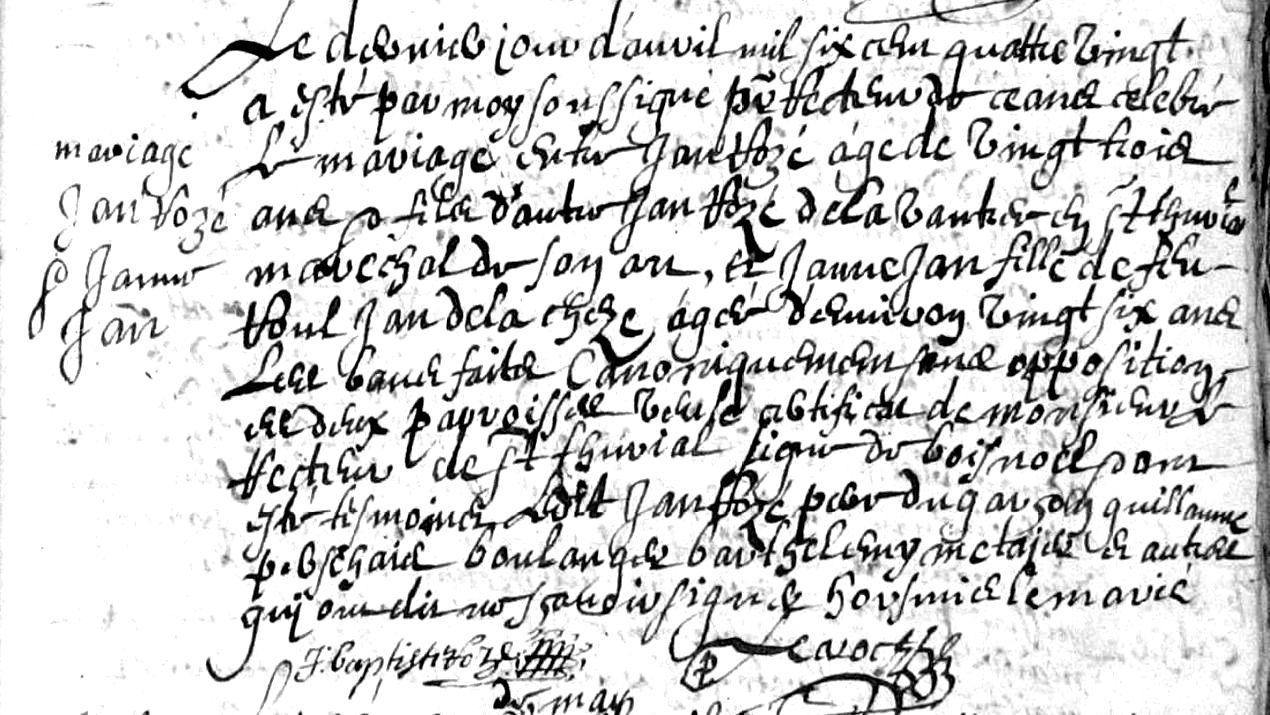 Le dernier jour d'auril mil six cent quattre vingt
a esté par moy soussigné prêtre Recteur de ceans celebré
mariage
Le mariage entre Jan Rozé âgé de vingt trois
Jan Rozé
ans fils d'autre Jan Rozé de la vantier en St thurial
& Janne
marechal de son art, et Janne Jan fille de feu
Jan
Roul Jan de la cheze, ágée d'enuiron vingt six ans
Les bans faits Canoniquement sans opposition
es deux parroisses veu le certificat de monsieur le
Recteur de St thurial signé de boisnoel, ont
esté tesmoins Ledit Jan Rozé pere du garson guillaume
boulanger barthelemy metajer et autres
quj ont dit ne scauoir signer horsmis le marié
J. baptiste Rozé